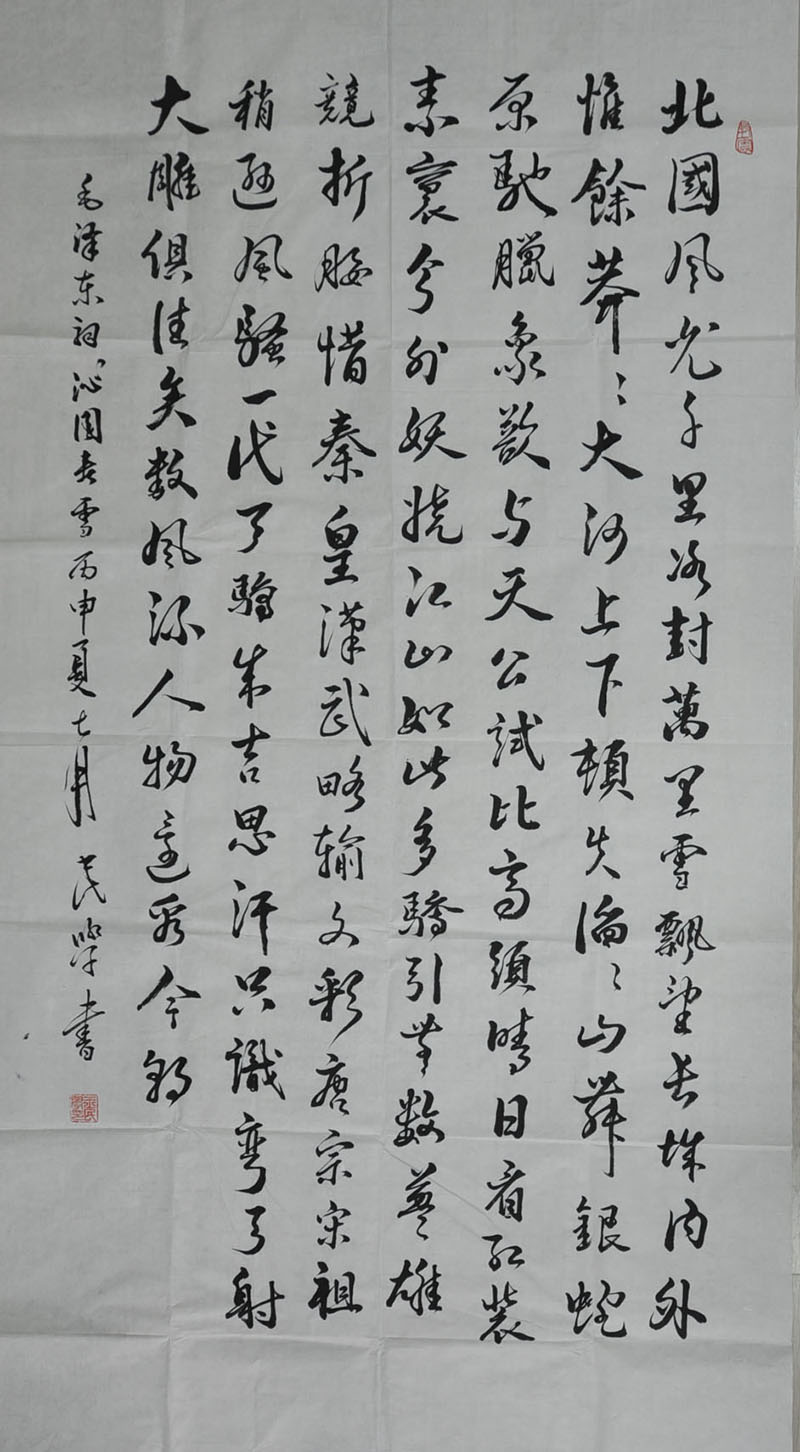 北國风光千里冰封萬里雪飄望長城内外
惟餘莽〻大河上下頓失滔〻山舞銀蛇
原馳臘象欲与天公試比高須晴日看红装
素裹分外妖娆江山如此多驕引無数英雄
競折腰惜秦皇漢武略输文彩唐宗宋祖
稍逊风騷一代天驕成吉思汗只識彎弓射
大雕俱往矣数风流人物還看今朝
毛泽东词“沁園春雪丙申夏七月 學書